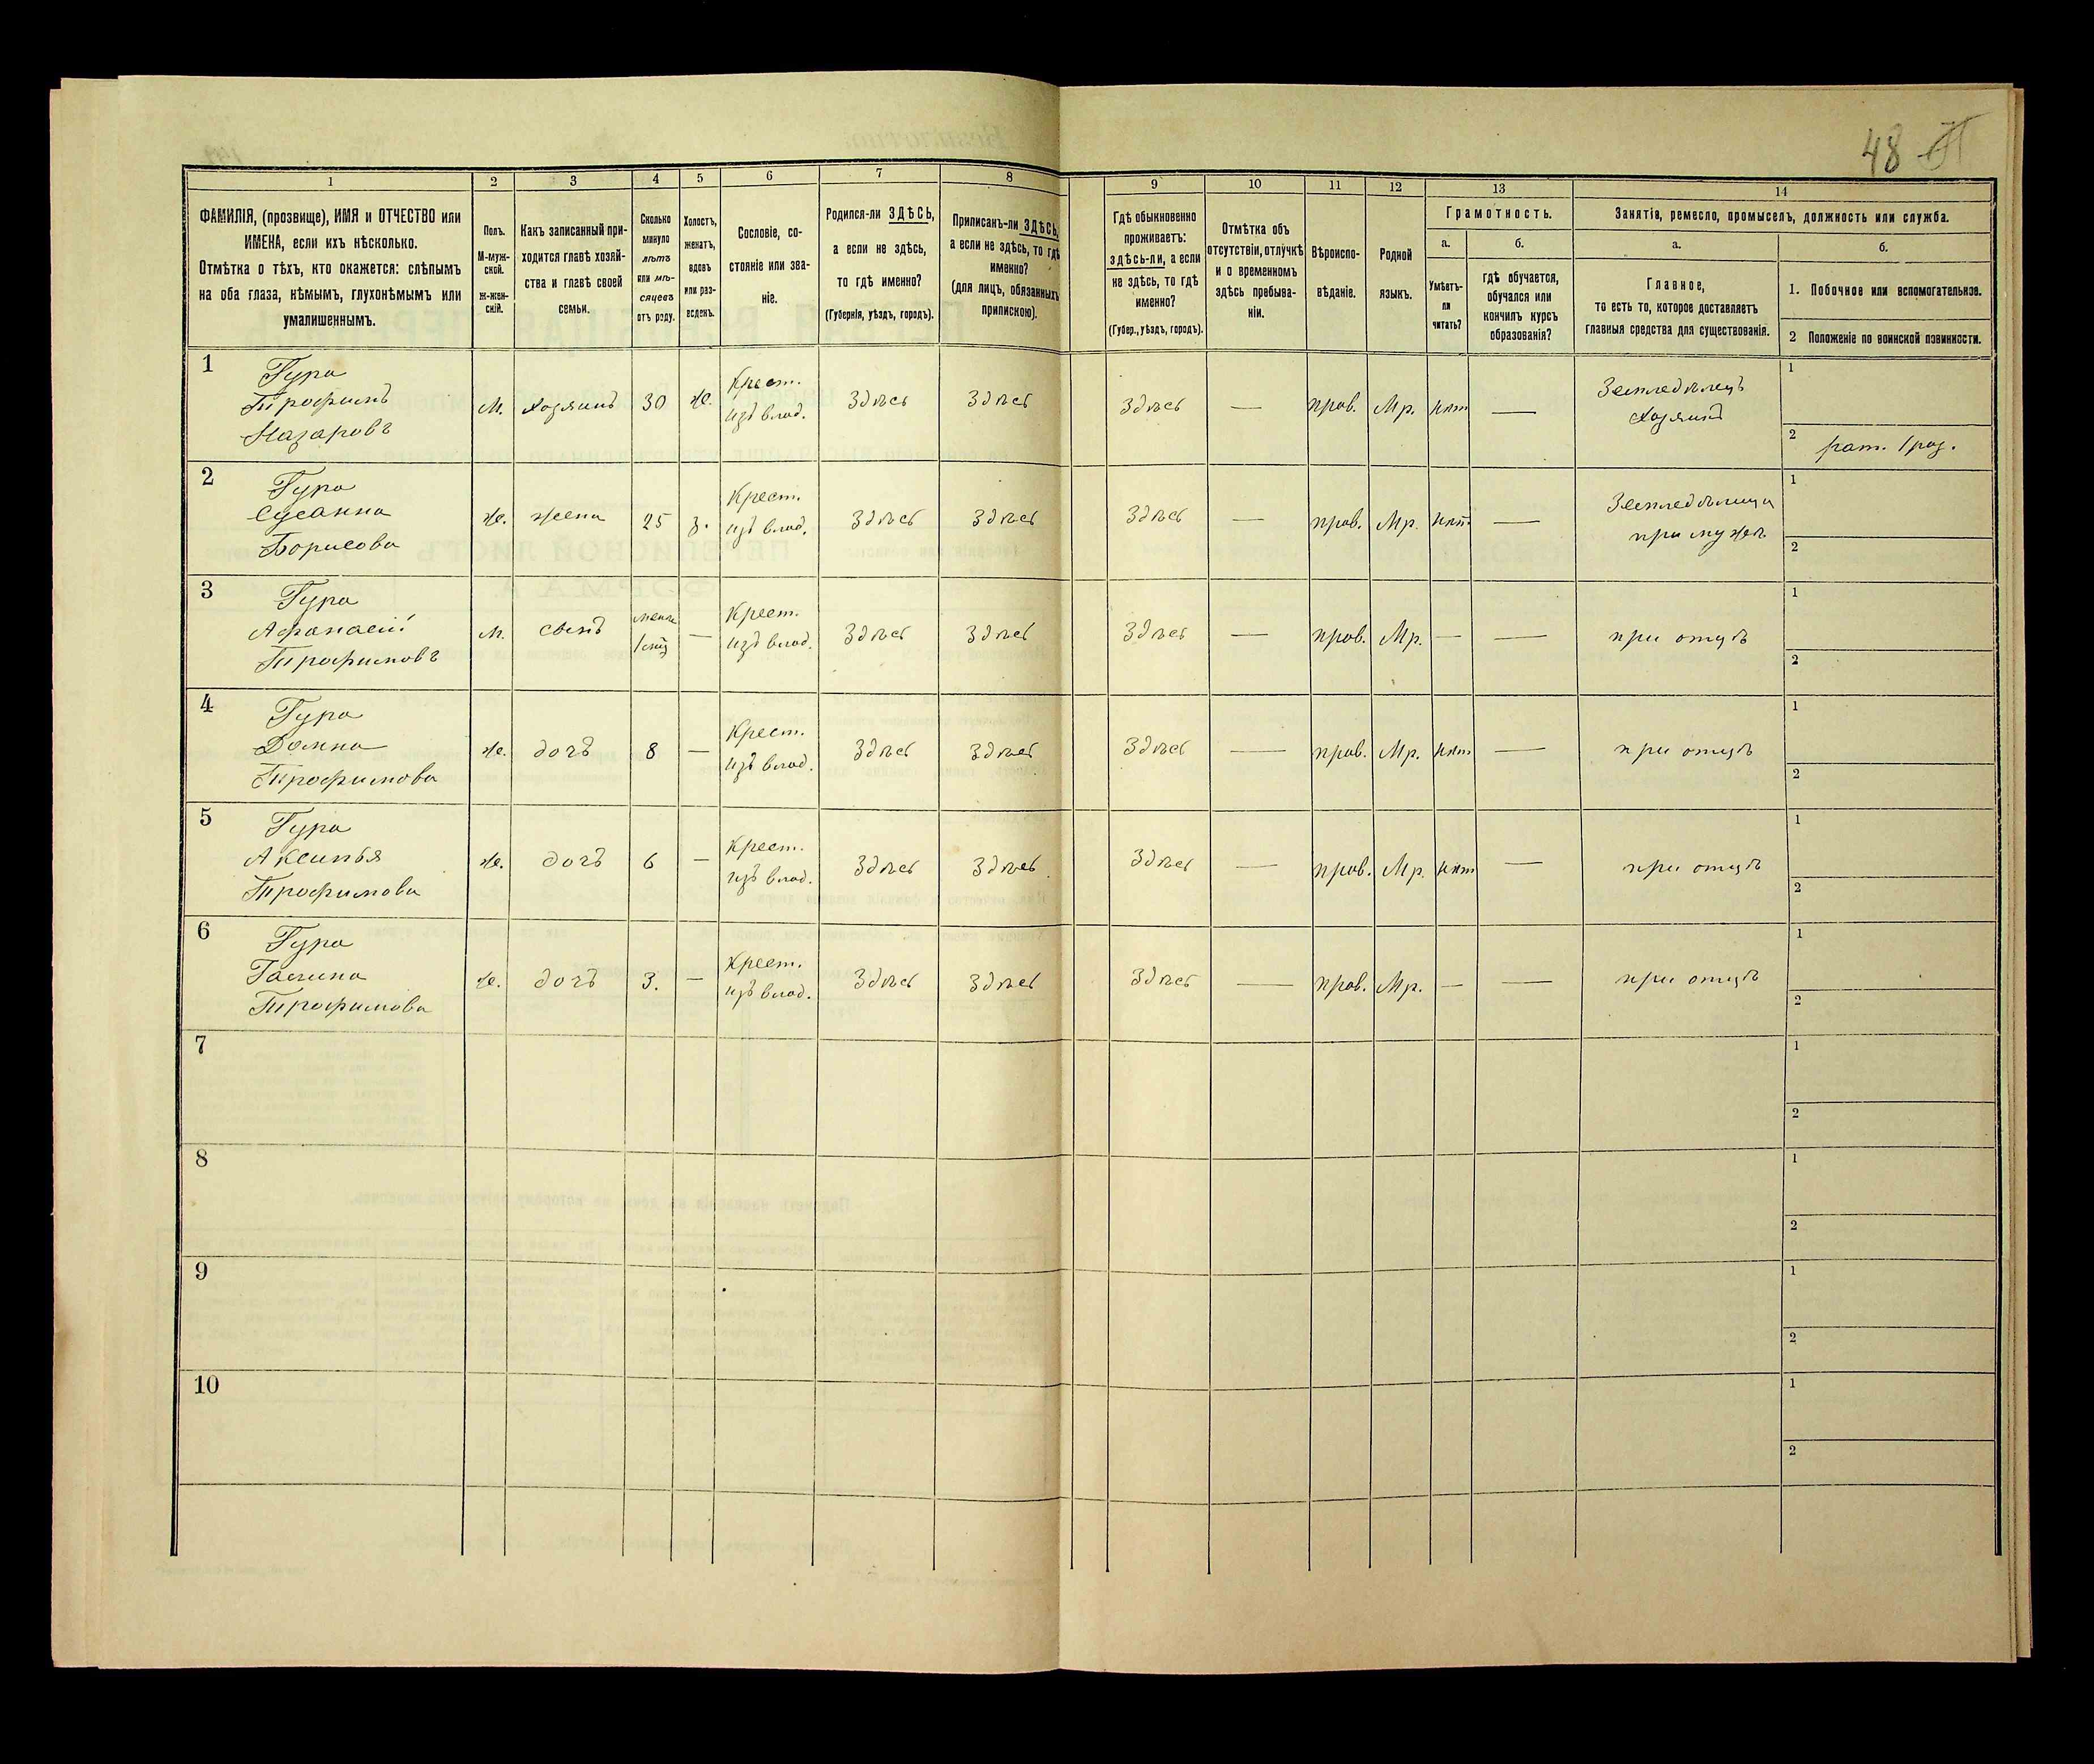 48
1
2
3
4
5
6
7
8
9
10
11
12
13
14
ФАМИЛІЯ, (прозвище), ИМЯ и ОТЧЕСТВО или
ИМЕНА, если ихъ нѣсколько.
Отмѣтка о тѣхъ, кто окажется: слѣпымъ
на оба глаза, нѣмымъ, глухонѣмымъ или
умалишеннымъ.
Полъ.
М-муж-
ской.
Ж-жен-
скій.
Какъ записанный при-
ходится главѣ хозяй-
ства и главѣ своей
семьи.
Сколько
минуло
лѣтъ
или мѣ-
сяцевъ
отъ роду.
Холостъ,
женатъ,
вдовъ
или раз-
веденъ.
Сословіе, со-
стояніе или зва-
ніе.
Родился-ли ЗДѢСЬ,
а если не здѣсь,
то гдѣ именно?
(Губернія, уѣздъ, городъ).
Приписанъ-ли ЗДѢСЬ,
а если не здѣсь, то гдѣ
именно?
(для лицъ, обязанныхъ
припискою).
Гдѣ обыкновенно
проживаетъ:
здѣсь-ли, а если
не здѣсь, то гдѣ
именно?
(Губер., уѣздъ, городъ).
Отмѣтка объ
отсутствіи, отлучкѣ
и о временномъ
здѣсь пребыва-
ніи.
Вѣроиспо-
вѣданіе.
Родной
языкъ.
Грамотность.
а.
Умѣетъ-
ли
читать?
б.
гдѣ обучается,
обучался или
кончилъ курсъ
образованія?
Занятія, ремесло, промыселъ, должность или служба.
а.
Главное,
то есть то, которое доставляетъ
главныя средства для существованія.
б.
1. Побочное или вспомогательное.
2 Положеніе по воинской повинности.
1
Гура
Трофимъ
Назаровъ
М. хозяинъ 30 ж. Крест. изъ влад. Здѣсь Здѣсь Здѣсь — прав. Мр. нѣт — Земледѣлецъ хозяинъ
1
2 рат. 1 раз.
2
Гура
Сусанна
Борисова
ж. жена 25 з. Крест. изъ влад. Здѣсь Здѣсь Здѣсь — прав. Мр. нѣт — Земледѣлица при мужѣ
1
2
3
Гура
Афанасій
Трофимовъ
м. сынъ — Крест. изъ влад. Здѣсь Здѣсь Здѣсь — прав. Мр. — — при отцѣ
1
2
4
Гура
Домна
Трофимова
ж. дочъ 8 — Крест. изъ влад. Здѣсь Здѣсь Здѣсь — прав. Мр. нѣт — при отцѣ
1
2
5
Гура
Аксинья
Трофимова
ж. дочъ 6 — Крест. изъ влад. Здѣсь Здѣсь Здѣсь — прав. Мр. нѣт — при отцѣ
1
2
6
Гура
Галина
Трофимова
ж. дочъ 3. — Крест. изъ влад. Здѣсь Здѣсь Здѣсь — прав. Мр. — — при отцѣ
1
2
7
1
2
8
1
2
9
1
2
10
1
2